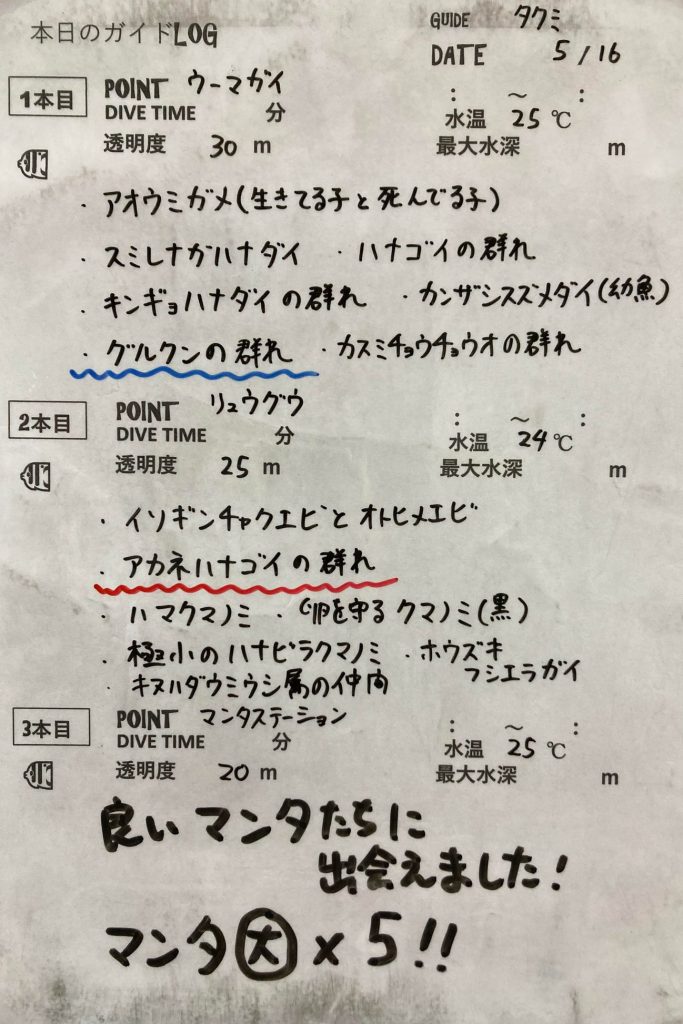 本日のガイドLOG
GUIDE タクミ
DATE 5/16
1本目 POINT ウーマガイ : ～ :
DIVE TIME 分 水温 25℃
透明度 30 m 最大水深 m
・アオウミガメ(生きてる子と死んでる子)
・スミレナガハナダイ ・ハナゴイの群れ
・キンギョハナダイの群れ ・カンザシスズメダイ(幼魚)
・グルクンの群れ ・カスミチョウチョウオの群れ
2本目 POINT リュウグウ : ～ :
DIVE TIME 分 水温 24℃
透明度 25 m 最大水深 m
・イソギンチャクエビとオトヒメエビ
・アカネハナゴイの群れ
・ハマクマノミ ・卵を守るクマノミ(黒)
・極小のハナビラクマノミ ・ホウズキ
フシエラガイ
・キヌハダウミウシ属の仲間
3本目 POINT マンタステーション : ～ :
DIVE TIME 分 水温 25℃
透明度 20 m 最大水深 m
良いマンタたちに
出会えました!
マンタ大×5!!